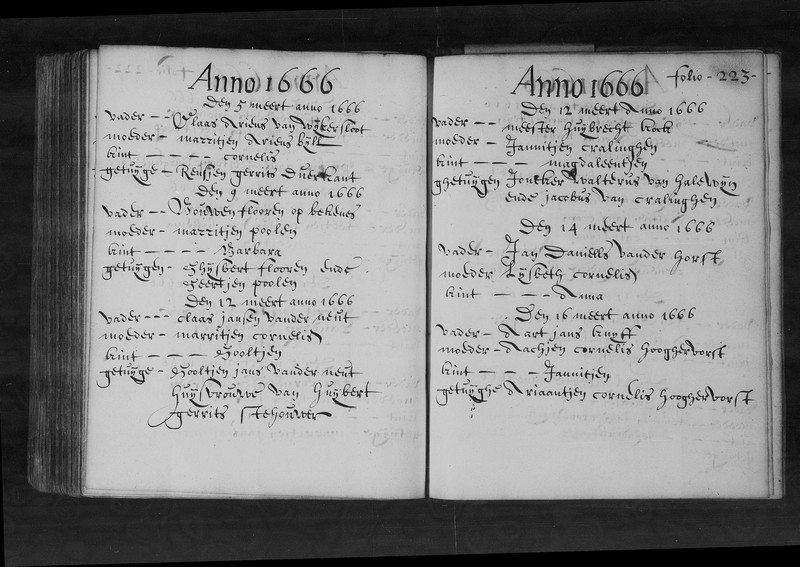 Anno 1666
Den 5 meert anno 1666
vader - - Claas Ariens van Wijkersloot
moeder - marritjen Ariens bijl
kint - - - - cornelis
getuijge - Rensjen gerrits Duerkant
Den 9 meert anno 1666
vader - - Gouwen flooren op bekenes
moeder - marritjen poolen
kint - - - - Barbara
getuijgen - Ghijsbert flooren ende
Feertjen poolen
Den 12 meert anno 1666
vader - - - claas jansen vander neut
moeder - marritjen cornelis
kint - - - - Gooltjen
getuijge - Gooltjen jans vander neut
huijsvrouwe van Huijbert
gerrits stehouwer
Anno 1666 folio - 223 -
Den 12 meert Anno 1666
vader - - meester huijbrecht kock
moeder - Jannitjen cralinghen
kint - - - - magdaleentjen
ghetuijgen Joncker walterus van halewijn
ende jacobus van cralinghen
Den 14 meert anno 1666
vader - Jan Daniells vander horst
moeder Lijsbeth cornelis
kint - - - - Anna
Den 16 meert anno 1666
vader - Aart jans knijff
moeder - Aachjen cornelis hooghervorst
kint - - - - Jannitjen
getuijghe Ariaantjen cornelis hooghervorst